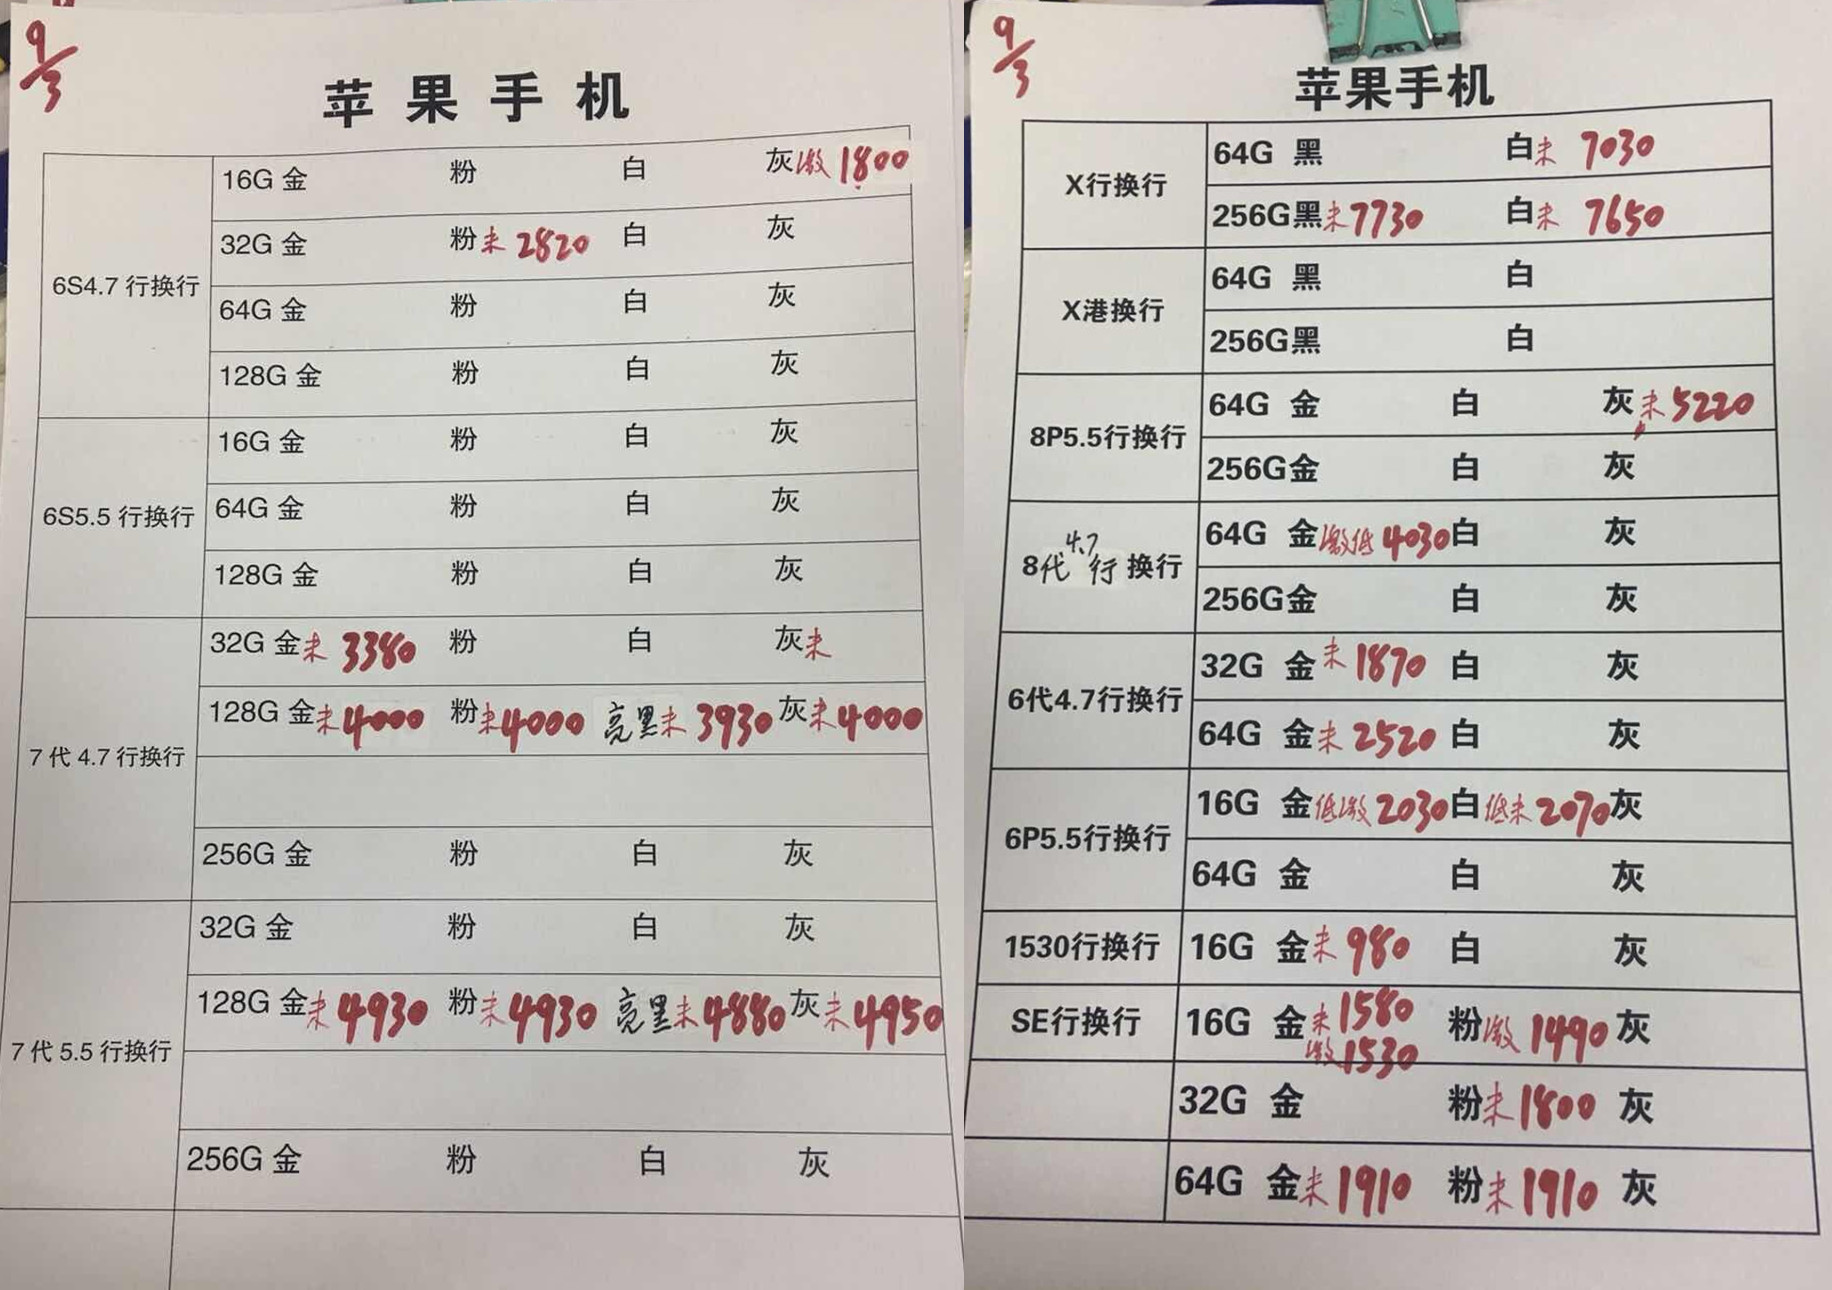 9/3
苹果手机
6S4.7 行换行
16G 金 粉 白 灰激 1800
32G 金 粉未 2820 白 灰
64G 金 粉 白 灰
128G 金 粉 白 灰
6S5.5 行换行
16G 金 粉 白 灰
64G 金 粉 白 灰
128G 金 粉 白 灰
7 代 4.7 行换行
32G 金未 3380 粉 白 灰未
128G 金未4000 粉未4000 亮黑未 3930 灰未4000
256G 金 粉 白 灰
7 代 5.5 行换行
32G 金 粉 白 灰
128G 金未4930 粉未4930 亮黑未4880 灰未4950
256G 金 粉 白 灰
9/3
苹果手机
X行换行
64G 黑 白未 7030
256G黑未7730 白未 7650
X港换行
64G 黑 白
256G黑 白
8P5.5行换行
64G 金 白 灰未5220
256G金 白 灰
8代4.7行换行
64G 金激低 4030 白 灰
256G金 白 灰
6代4.7行换行
32G 金未1870 白 灰
64G 金未2520 白 灰
6P5.5行换行
16G 金低激2030 白低未2070 灰
64G 金 白 灰
1530行换行
16G 金未980 白 灰
SE行换行
16G 金未1580 粉激1490 灰
激1530
32G 金 粉未1800 灰
64G 金未1910 粉未1910 灰